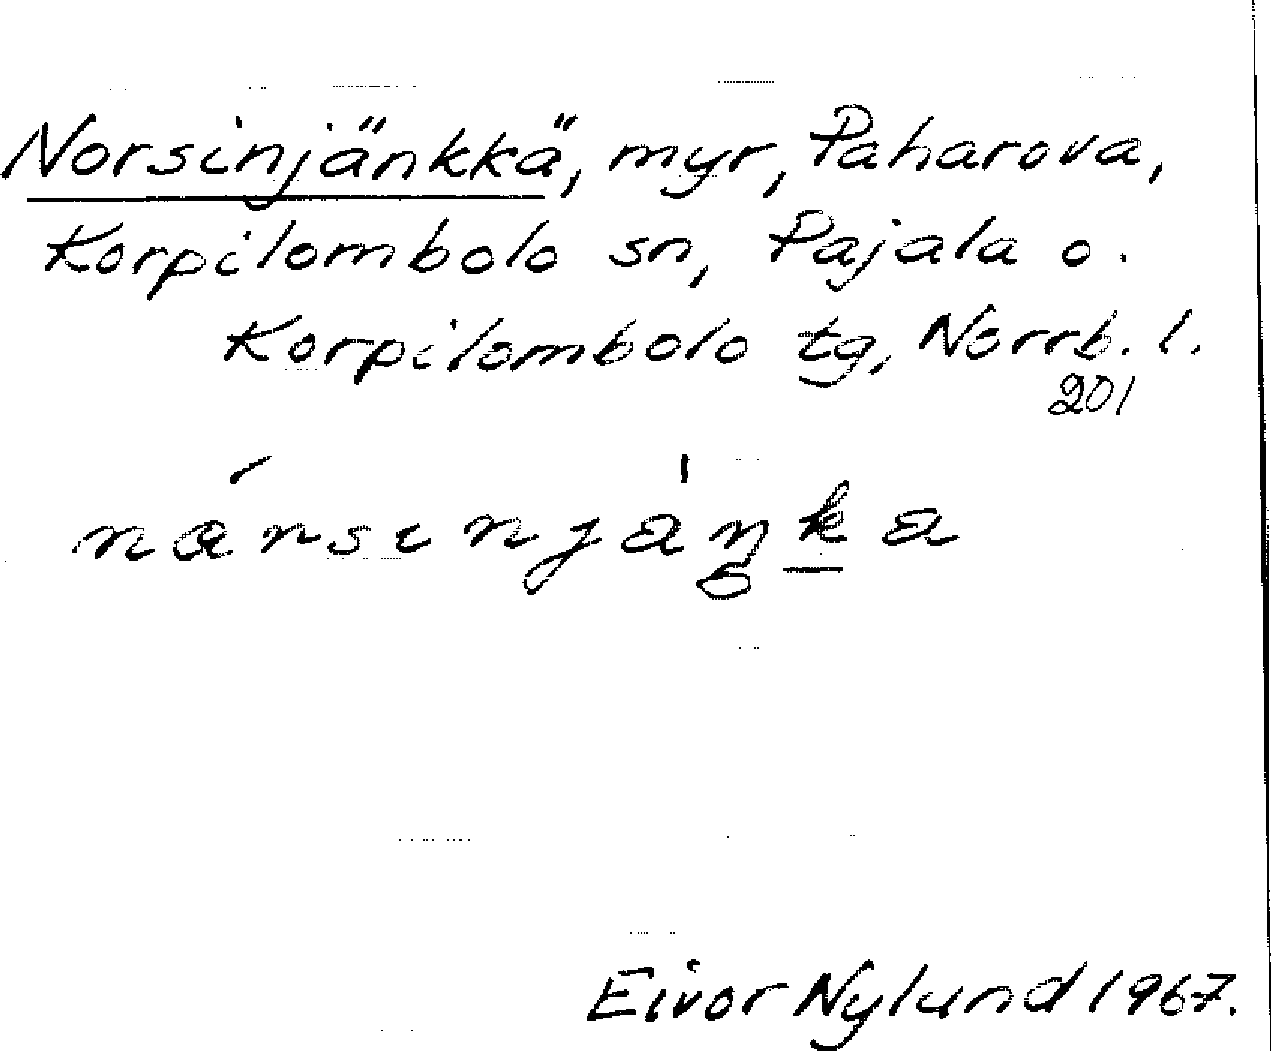 Norsinjänkkä, myr, Paharova,
Korpilombolo sn, Pajala o.
Korpilombolo tg, Norrb. l.
201
Eivor Nylund 1967.